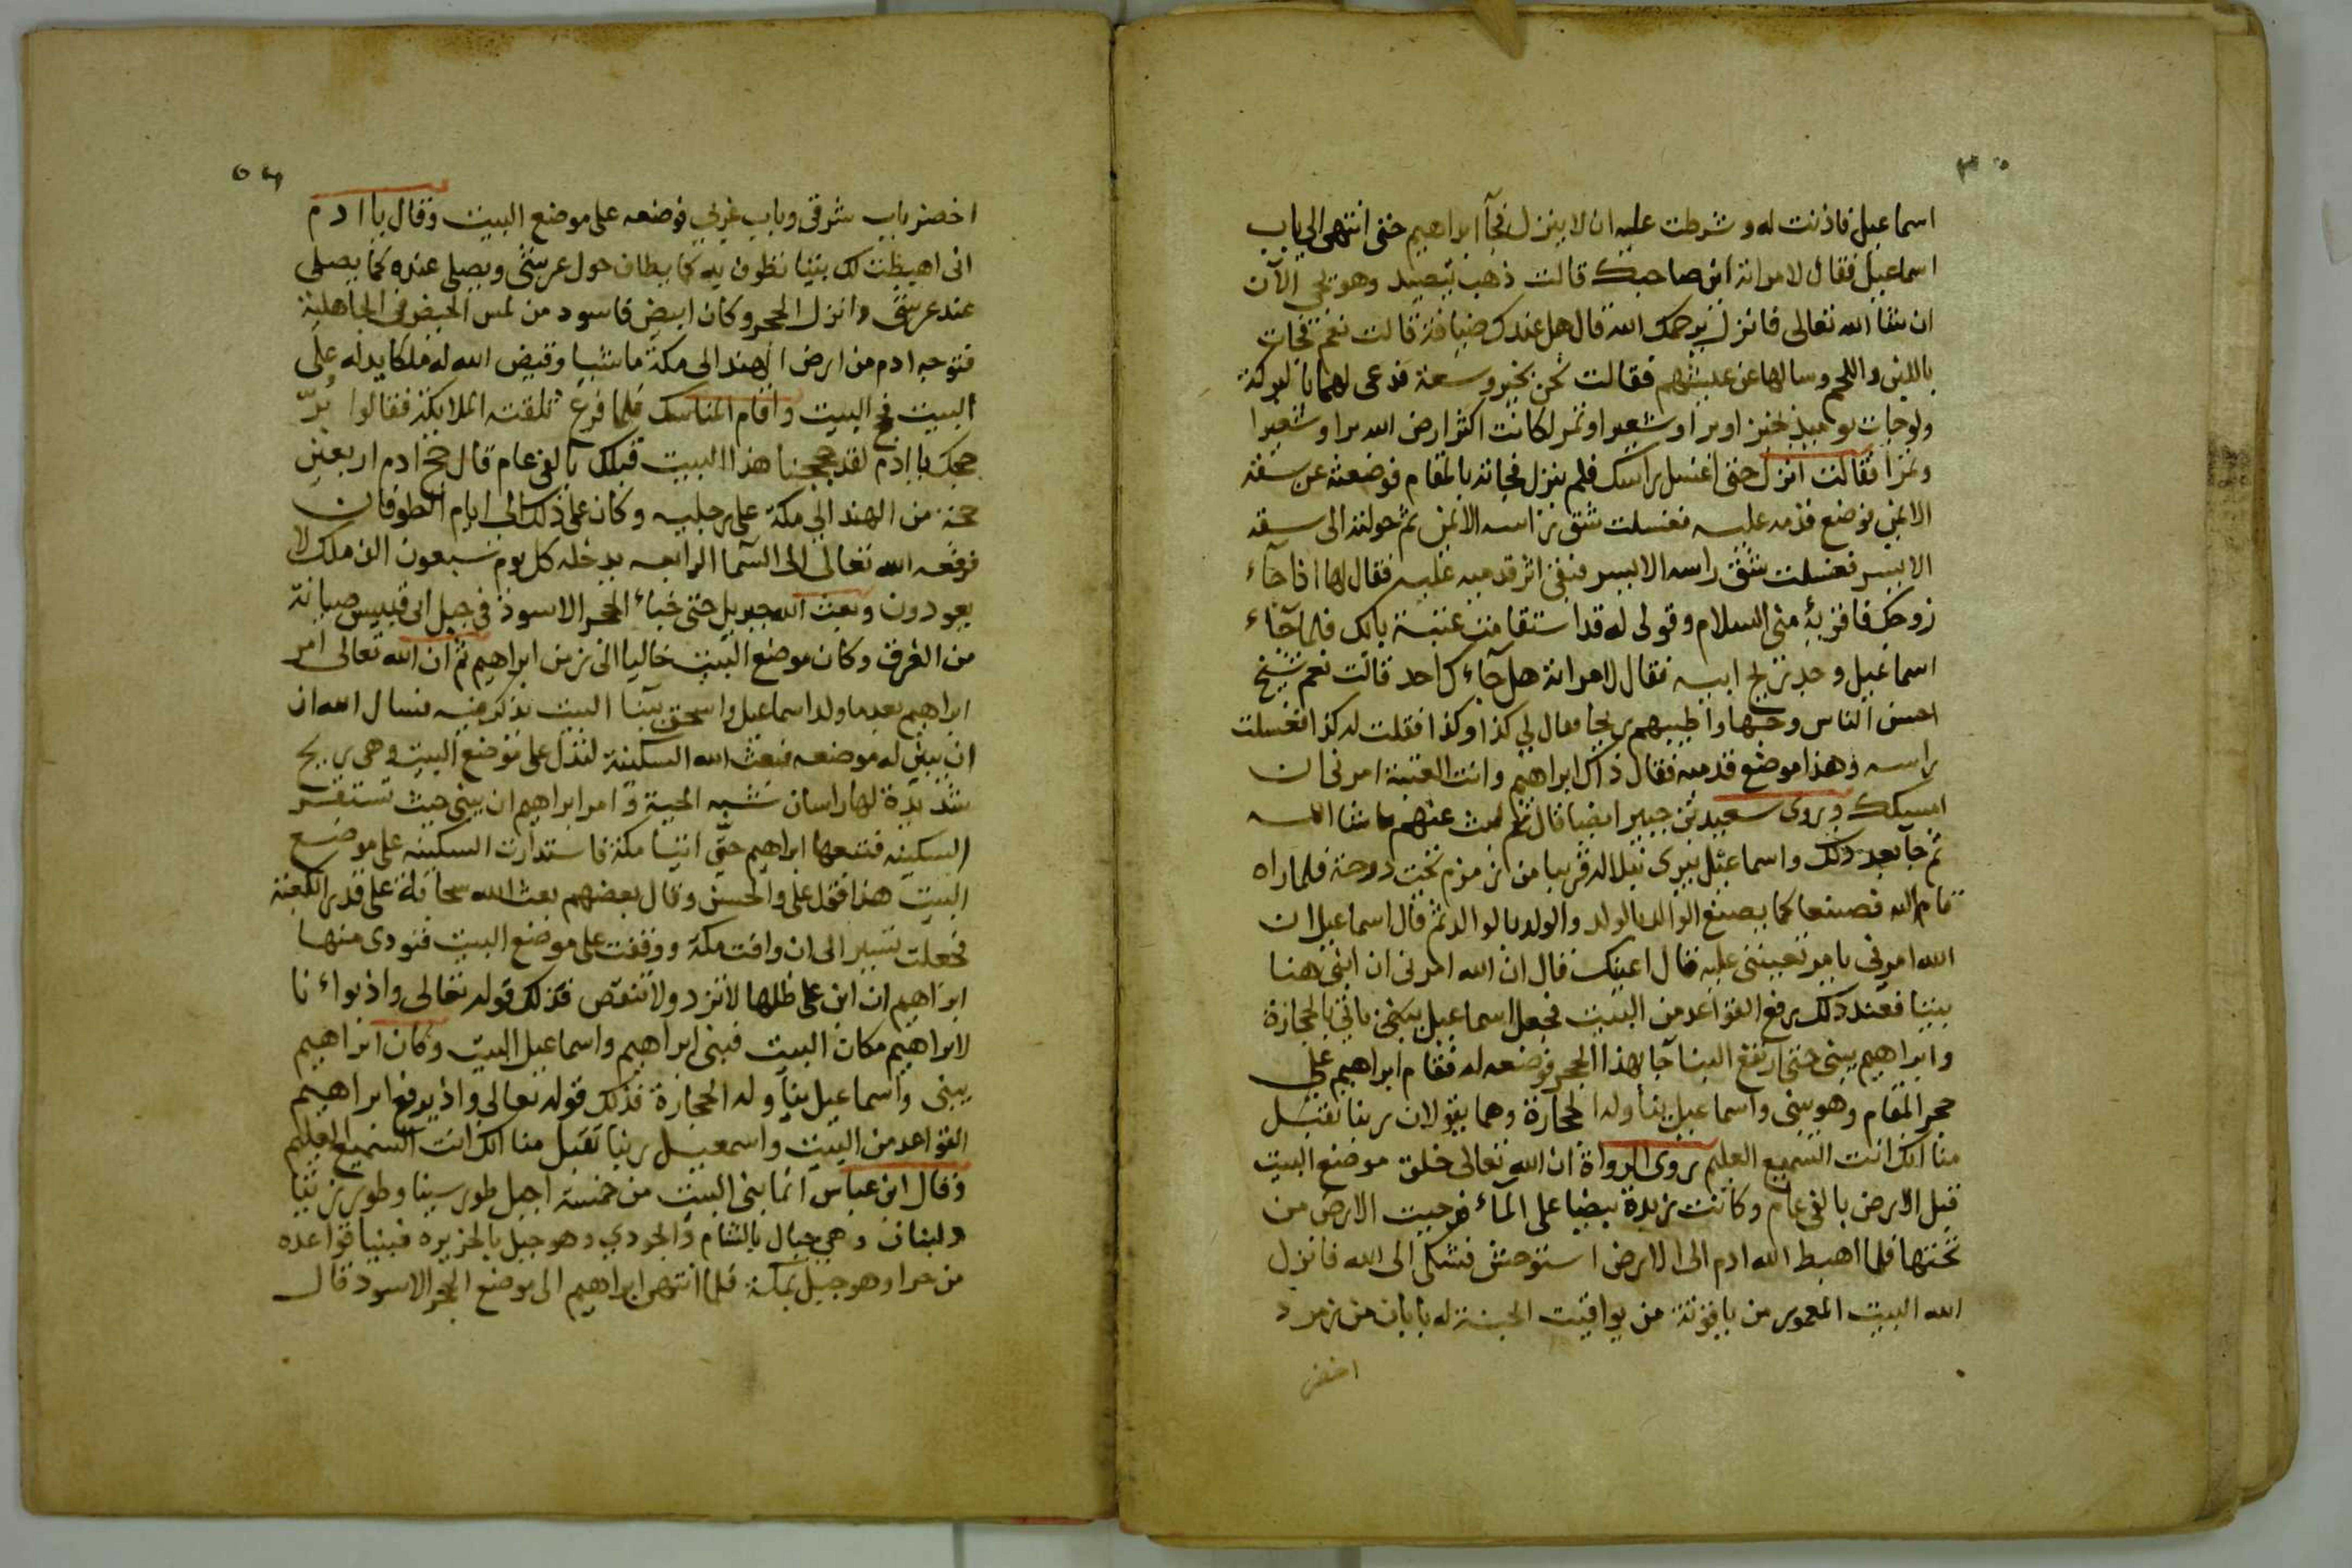 اسماعيل فاذنت له وشرطت عليه ان لا ينزل فجآ ابراهيم حتى انتهى الى باب
اسماعيل فقال لامراته اين صاحبك قالت ذهب يتصيد وهو يجي الآن
ان شا الله تعالى فانزل يرحمك الله قال هل عندك ضيافة قالت نعم فجات
باللبن واللحم وسالها عن عيشهم فقالت نحن بخير وسعة فدعى لهما بالبركة
ولو جات يوميذ بخبز او بر او شعير او تمر لكانت اكثر ارض الله برا وشعيرا
وتمرا فقالت انزل حتى اغسل راسك فلم ينزل فجاته بالمقام فوضعته عن سقه
الايمن فوضع قدمه عليه فغسلت شق راسه الايمن ثم حولته الى سقه
الايسر فغسلت شق راسه الايسر فبقى اثر قدميه عليه فقال لها اذا جآء
زوجك فاقريه منى السلام وقولى له قد استقامت عتبة بابك فلما جآء
اسماعيل وجد ريح ابيه فقال لامراته هل جآءك احد قالت نعم شيخ
احسن الناس وجها واطيبهم ريحا فقال لى كذا وكذا فقلت له كذا فغسلت
راسه وهذا موضع قدميه فقال ذاك ابراهيم وانت العتبة امرنى ان
امسكك وروى سعيد بن جبير ايضا قال ثم لبث عنهم ما شا الله
ثم جآ بعد ذلك واسماعيل يبرى نبلا له قريبا من زمزم تحت دوحة فلما راه
قام اليه فصنعا كما يصنع الوالد بالولد والولد بالوالد ثم قال اسماعيل ان
الله امرنى بامر تعيننى عليه قال اعينك قال ان الله امرنى ان ابنى هنا
بيتا فعند ذلك رفع القواعد من البيت فجعل اسماعيل ياتى بالحجارة
وابراهيم يبنى حتى ارتفع البنا جا بهذا الحجر فوضعه له فقام ابراهيم على
حجر المقام وهو يبنى واسماعيل يناوله الحجارة وهما يقولان ربنا تقبل
منا انك انت السميع العليم روى الرواة ان الله تعالى خلق موضع البيت
قبل الارض بالفى عام وكانت زبدة بيضا على المآء فدحيت الارض من
تحتها فلما اهبط الله ادم الى الارض استوحش فشكى الى الله فانزل
الله البيت المعمور من ياقوتة من يواقيت الجنة له بابان من زمرد
اخضر
اخضر باب شرقى وباب غربى فوضعه على موضع البيت وقال يا ادم
انى اهبطت لك بيتا تطوف به كما يطاف حول عرشى ويصلى عنده كما يصلى
عند عرشى وانزل الحجر وكان ابيض فاسود من لمس الحيض فى الجاهلية
فتوجه ادم من ارض الهند الى مكة ماشيا وقيض الله له ملكا يدله على
البيت فحج البيت واقام المناسك فلما فرغ تلقته الملايكة فقالوا برّ
حجك يا ادم لقد حججنا هذا البيت قبلك بالفى عام قال حج ادم اربعين
حجة من الهند الى مكة على رجليه وكان على ذلك الى ايام الطوفان
فرفعه الله تعالى الى السآ الرابعه يدخله كل يوم سبعون الف ملك لا
يعودون وبعث الله جبريل حتى خباء الحجر الاسود فى جبل ابى قبيس صيانة
من الغرق وكان موضع البيت خاليا الى زمن ابراهيم ثم ان الله تعالى امر
ابراهيم بعد ما ولد اسماعيل واسحق ببنا البيت يذكر فيه فسال الله ان
ان يبين له موضعه فبعث الله السكينة لتدل على موضع البيت وهى ريح
شديدة لها راسان شبه الحية وامر ابراهيم ان يبنى حيث تستقر
السكينه فتبعها ابراهيم حتى اتيا مكة فاستدارت السكينه على موضع
البيت هذا قول على والحسن وقال بعضهم بعث الله سحابة على قدر الكعبة
فجعلت تسير الى ان وافت مكة ووقفت على موضع البيت فنودى منها
ابراهيم ان ابن على ظلها لا تزد ولا تنقص فذلك قوله تعالى واذ بوانا
لابراهيم مكان البيت فبنى ابراهيم واسماعيل البيت وكان ابراهيم
يبنى واسماعيل يناوله الحجارة فذلك قوله تعالى واذ يرفع ابراهيم
القواعد من البيت واسمعيل ربنا تقبل منا انك انت السميع العليم
وقال ابن عباس انما بنى البيت من خمسة اجبل طور سينا وطور زيتا
ولبنان وهى جبال بالشام والجودي وهو جبل بالجزيره فبنيا قواعده
من حرا وهو جبل بمكة فلما انتهى ابراهيم الى موضع الحجر الاسود قال